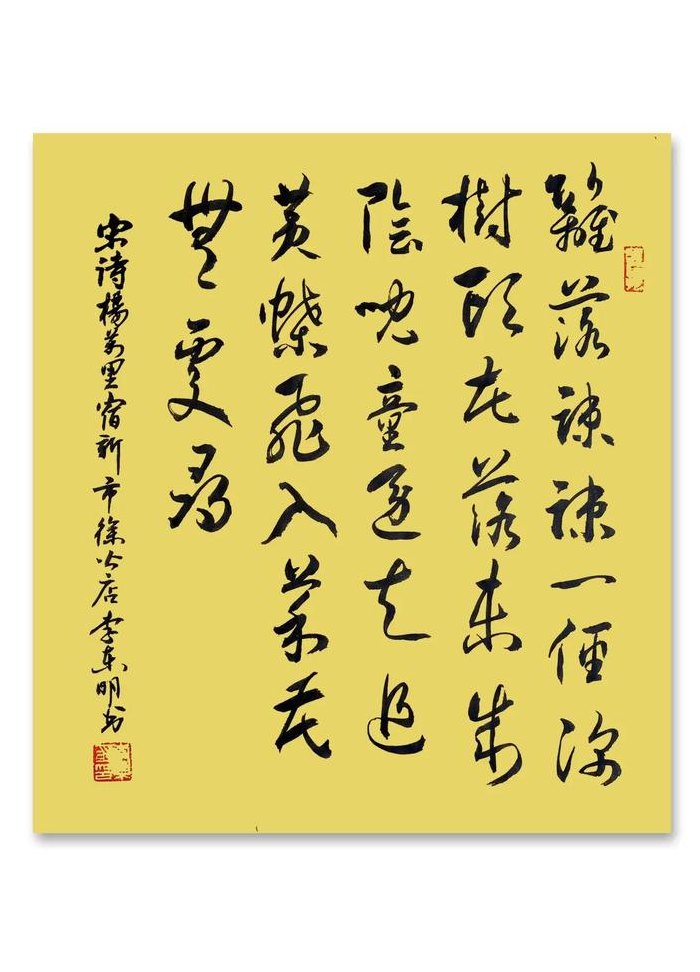 籬落疎疎一徑深
樹頭花落未成
陰兒童急走追
黃蝶飛入菜花
無處尋
宋诗楊萬里宿新市徐公店李東明书